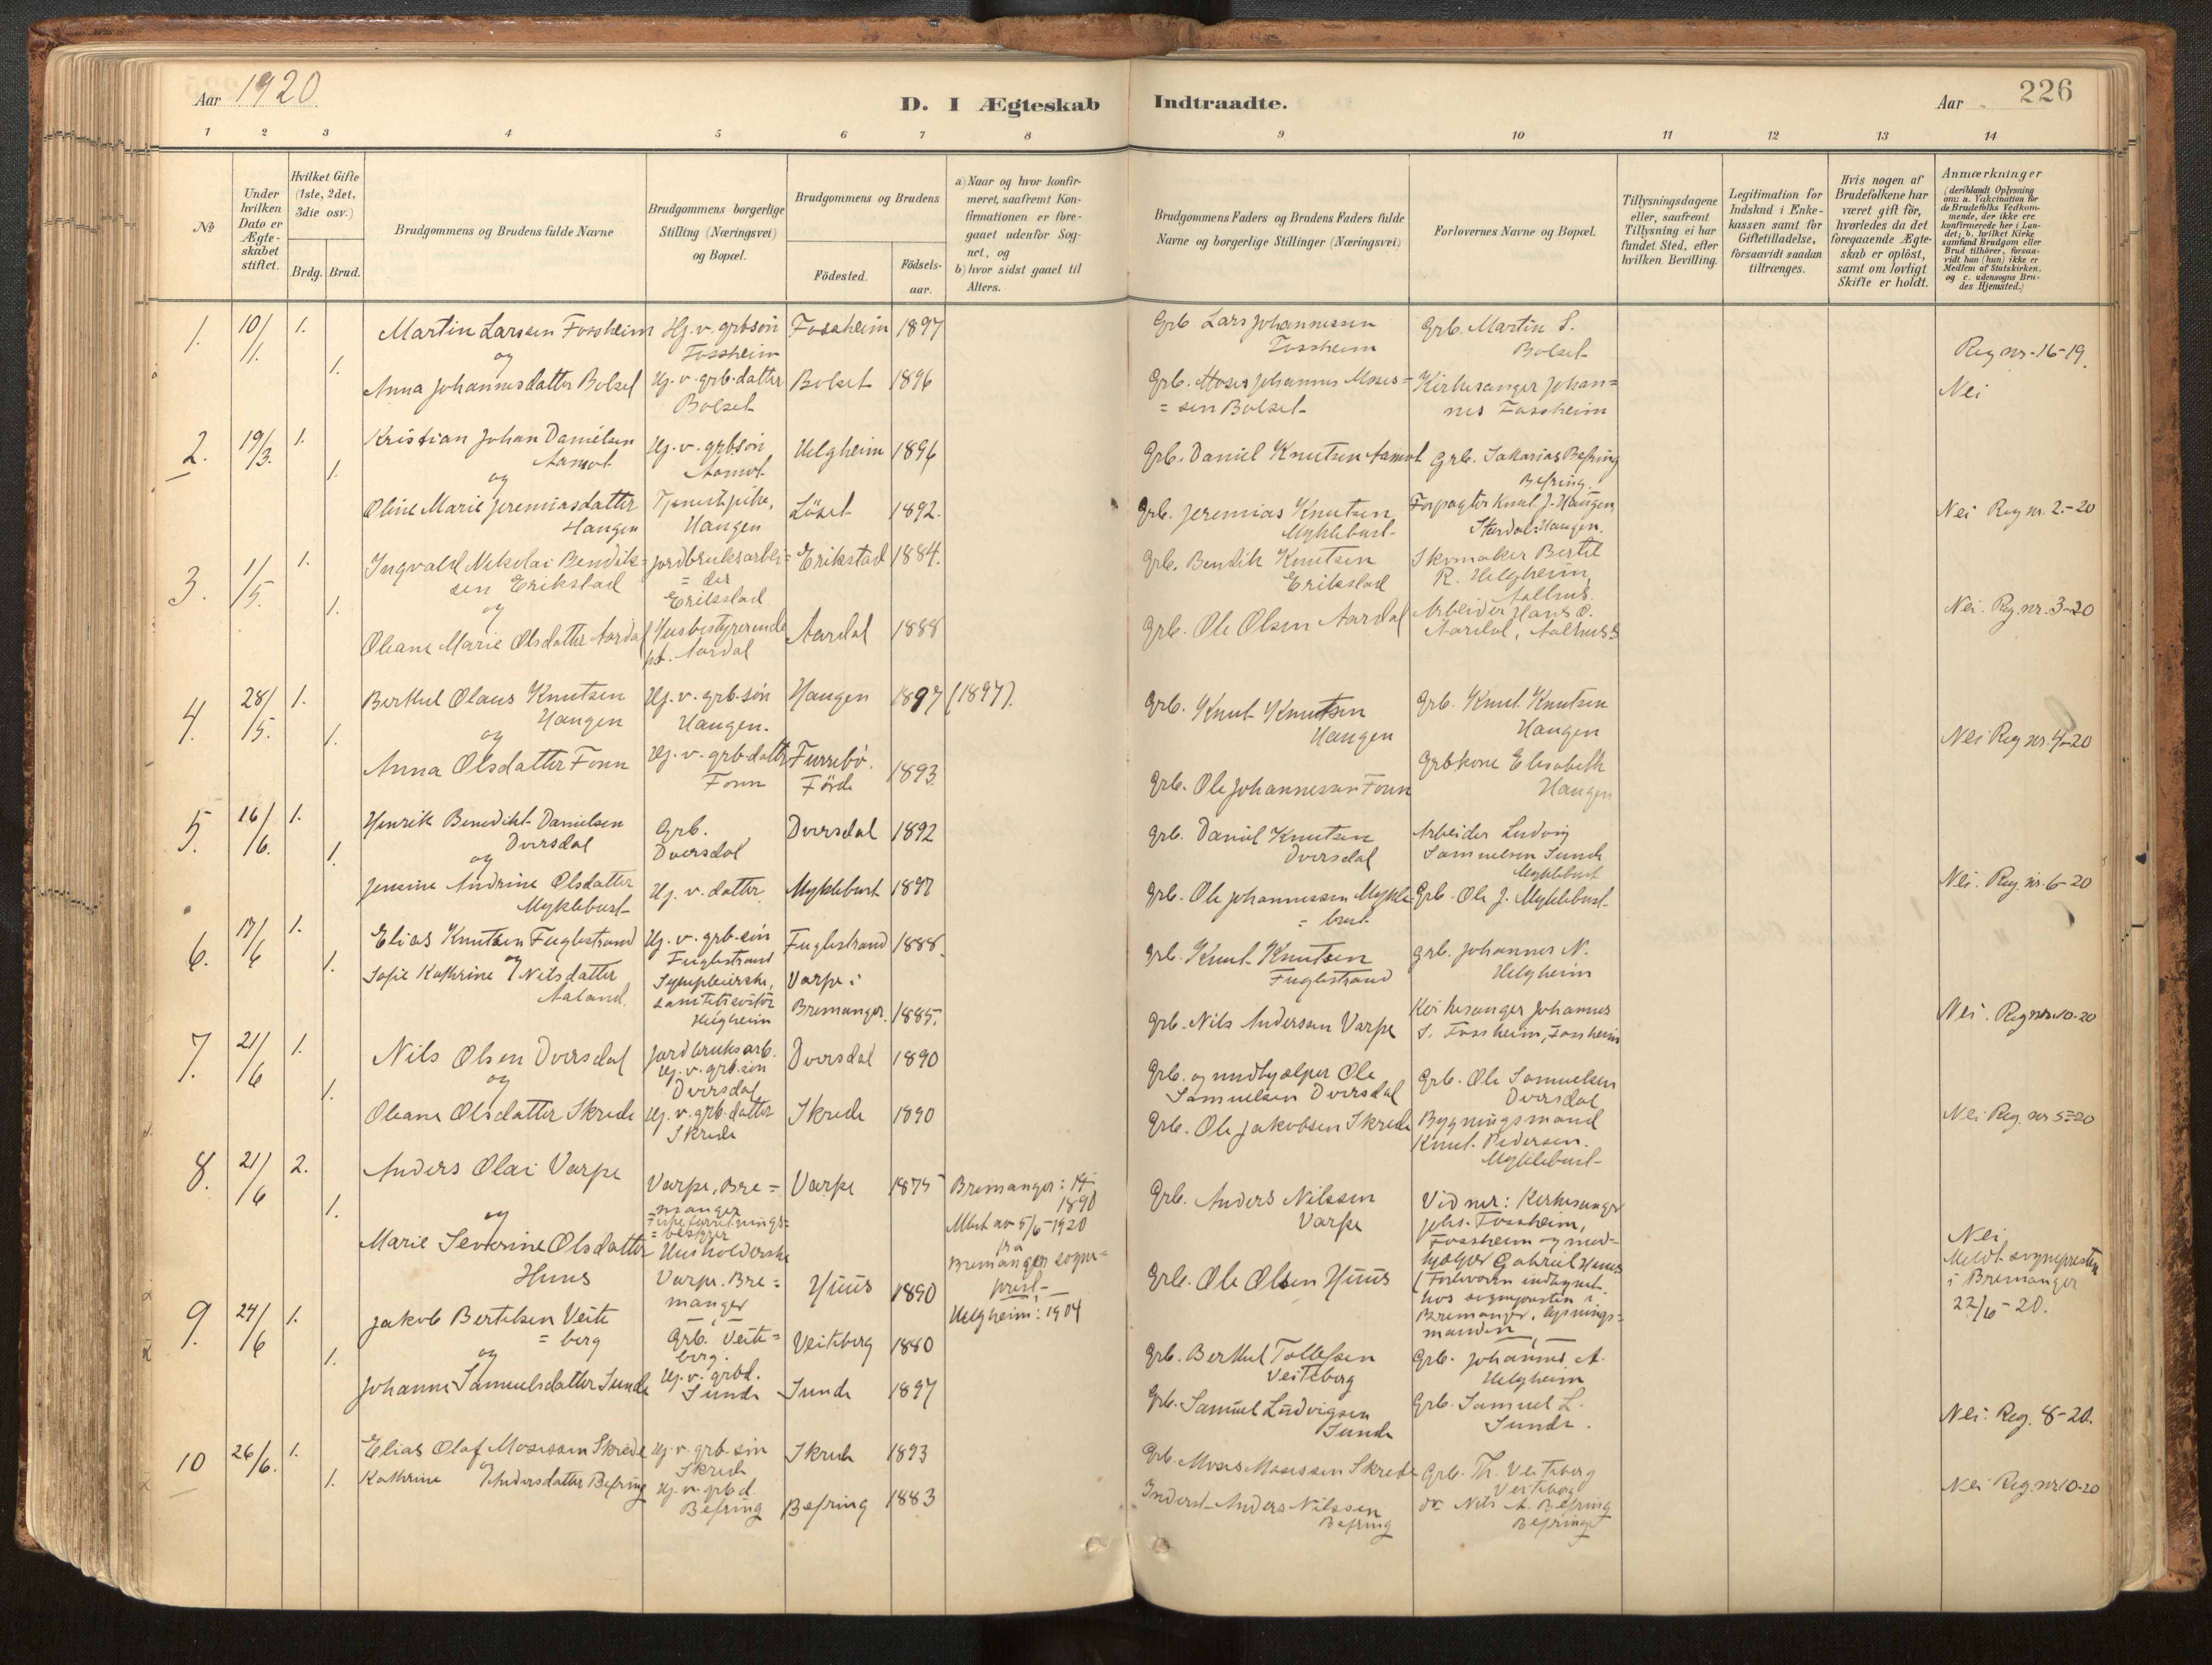 Aar 1920.
D. I Ægteskab
Indtraadte.
Aar
226
1 2 3 4 5 6 7 8 9 10 11 12 13 14
№
Under hvilken Dato er Ægteskabet stiftet.
Hvilket Gifte (1ste, 2det, 3die osv.)
Brdg. Brud.
Brudgommens og Brudens fulde Navne
Brudgommens borgerlige Stilling (Næringsvei) og Bopæl.
Brudgommens og Brudens
Födested.
Födsels-aar.
a) Naar og hvor konfir-
meret, saafremt Kon-
firmationen er fore-
gaaet udenfor Sog-
net, og
b) hvor sidst gaaet til
Alters.
Brudgommens Faders og Brudens Faders fulde
Navne og borgerlige Stillinger (Næringsvei)
Forlovernes Navne og Bopæl.
Tillysningsdagene
eller, saafremt
Tillysning ei har
fundet Sted, efter
hvilken Bevilling.
Legitimation for
Indskud i Enke-
kassen samt for
Giftetilladelse,
forsaavidt saadan
tiltrænges.
Hvis nogen af
Brudefolkene har
været gift för,
hvorledes da det
foregaaende Ægte-
skab er oplöst,
samt om lovligt
Skifte er holdt.
Anmærkninger
(deriblandt Oplysning
om: a. Vakcination for
de Brudefolks Vedkom-
mende, der ikke ere
konfirmerede her i Lan-
det; b. hvilket Kirke
samfund Brudgom eller
Brud tilhörer, forsaa-
vidt han (hun) ikke er
Medlem af Statskirken,
og c. udensogns Bru-
des Hjemsted.)
1. 10/1. 1. Martin Larssen Fossheim Hj. v. grbsøn Fossheim Fossheim 1897
Grb. Lars Johannessen Fossheim
Grb. Martin S. Bolset
Reg nr. 16-19.
og
1. Anna Johannesdatter Bolset Hj. v. grb. datter Bolset Bolset 1896
Grb. Moses Johannes Moses=
=sen Bolset
Kirkesanger Johan=
nes Fossheim
Nei
2. 19/3. 1. Kristian Johan Danielsen Aamot Hj. v. grbsøn Aamot Helgheim 1896
Grb. Daniel Knutsen Aamot
Grb. Sakarias Befring Befring.
og
1. Oline Marie Jeremiasdatter Haugen Tjenestpike, Haugen Löset 1892.
Grb. Jeremias Knutsen Myklebust
Forpagter Knut J. Haugen, Stardal=Haugen.
Nei Reg nr. 2-20
3. 1/5. 1. Ingvald Nikolai Bendik=
sen Erikstad
Jordbruksarbei=
=der
Erikstad
Erikstad 1884.
Grb. Bendik Knutsen Erikstad
Skomaker Bertil
R. Helgheim,
Aalhus.
og
1. Oleane Marie Olsdatter Aardal Husbestyrerinde pt. Aardal Aardal 1888
Grb. Ole Olsen Aardal
Arbeider Hans O.
Aardal, Aalhus.
Nei. Reg. nr. 3-20
4. 28/5. 1. Berthel Olaus Knutsen Haugen Hj. v. grb. søn Haugen. Haugen 1897 (1897).
Grb. Knut Knutsen Haugen
Grb. Knut Knutsen Haugen
og
1. Anna Olsdatter Fonn Hj. v. grb. datter Fonn Furrebø. Förde 1893
Grb. Ole Johannessen Fonn
Grbkone Elisabeth Haugen
Nei Reg nr. 4-20
5. 16/6. 1. Henrik Benedikt Danielsen Dversdal Grb. Dversdal Dversdal 1892
Grb. Daniel Knutsen Dversdal
Arbeider Ludvig
Samuelsen Sunde
Myklebust
og
1. Jensine Andrine Olsdatter Myklebust Hj. v. datter Myklebust 1897
Grb. Ole Johannessen Mykle
=bust
Grb. Ole J. Myklebust
Nei. Reg. nr. 6-20
6. 17/6 1. Elias Knutsen Fuglestrand Hj. v. grb. søn Fuglestrand Fuglestrand 1888.
Grb. Knut Knutsen Fuglestrand
Grb. Johannes N. Helgheim
og
1. Sofie Kathrine Nilsdatter Aaland. Sykepleierske, Helgheim Varpe i Bremanger. 1885.
Grb. Nils Andersen Varpe
Kirkesanger Johannes
S. Fossheim, Fossheim
Nei. Reg nr. 10-20
7. 21/6 1. Nils Olsen Dversdal Jordbruksarb. Hj. v. grb. søn Dversdal Dversdal 1890
Grb. og medhjælper Ole Samuelsen Dversdal
Grb. Ole Samuelsen Dversdal
og
1. Oleane Olsdatter Skrede Hj. v. grb. datter Skrede Skrede 1890
Grb. Ole Jakobsen Skrede
Bygningsmand
Knut Pedersen.
Myklebust
Nei Reg. nr 5-20
8. 21/6 2. Anders Olai Varpe Varpe, Bre=
=manger
Varpe 1875 Bremanger:
1890
Attest av 5/6-1920
fra
Bremanger sogne=
prest
Grb. Anders Nilssen Varpe
Vidner: Kirkesanger
Johs. Fossheim,
Fossheim og med=
hjælper Gabriel Huus
og
1. Marie Severine Olsdatter Huus Husholderske Varpe. Bre=
manger
Huus 1890 Helgheim: 1904
Grb. Ole Olsen Huus
(Forloverne indtegnet
hos sognepresten i
Bremanger. lysnings=
manden
Nei
Meldt sognepresten
i Bremanger
22/6-20.
9. 24/6 1. Jakob Bertelsen Veite
=berg
Grb. Veite=
berg.
Veiteberg 1880
Grb. Berthel Tollefsen Veiteberg
Grb. Johannes A. Helgheim
og
1. Johanne Samuelsdatter Sunde Hj. v. grbd. Sunde Sunde 1897
Grb. Samuel Ludvigsen Sunde
Grb. Samuel L. Sunde.
Nei: Reg. 8-20.
10 26/6. 1. Elias Olaf Mosessen Skrede Hj. v. grb. søn Skrede Skrede 1893
Grb. Moses Mosessen Skrede
Grb. Th. Veiteberg Veiteberg
og
1. Kathrine Andersdatter Befring Hj. v. grbd. Befring Befring 1883
Inderst Anders Nilssen Befring
do Nils A. Befring Befring
Nei Reg. nr 10-20